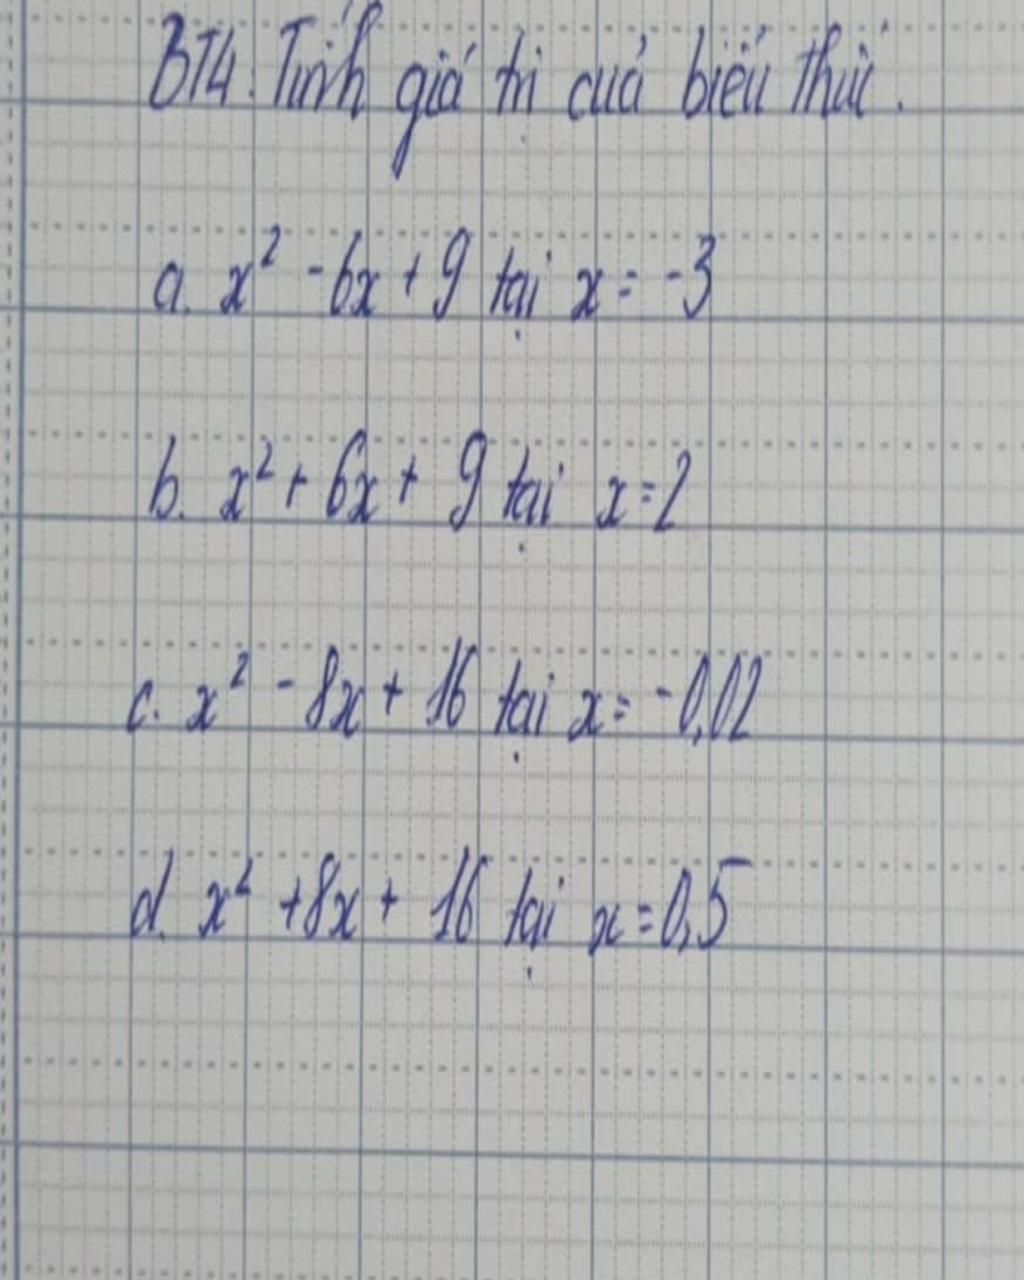 BT4. Tính giá trị của biểu thức.
a. x² - 6x + 9 tại x = -3
b. x² + 6x + 9 tại x = 2
c. x² - 8x + 16 tại x = -0,02
d. x² + 8x + 16 tại x = 0,5